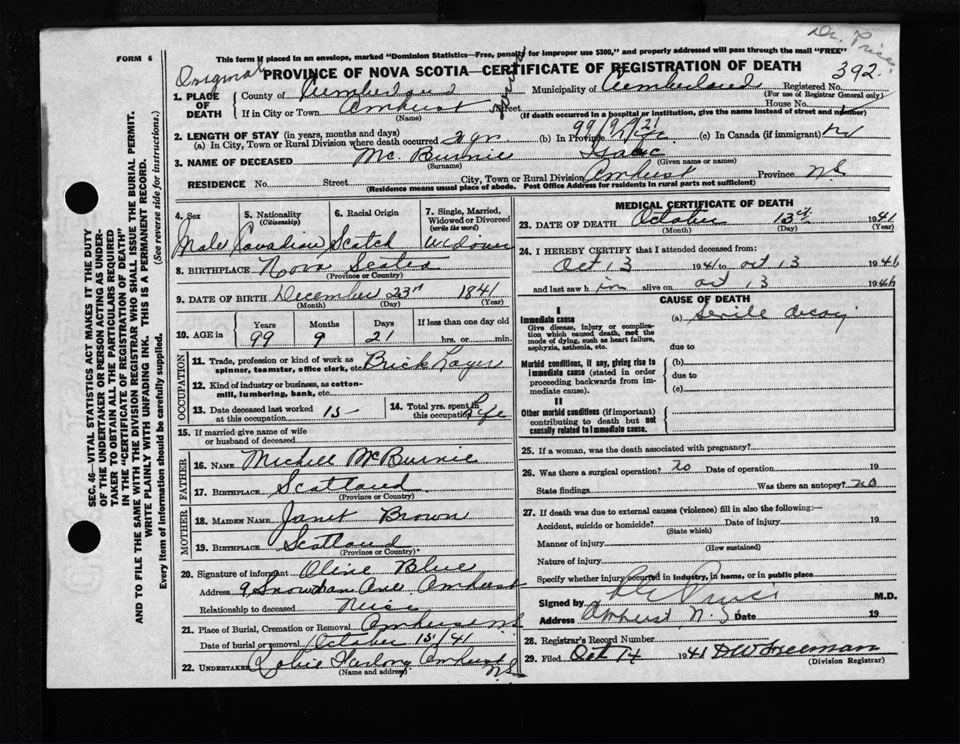 Dr. Price
FORM 6
This form if placed in an envelope, marked "Dominion Statistics—Free, penalty for improper use $300," and properly addressed will pass through the mail "FREE"
Original
PROVINCE OF NOVA SCOTIA—CERTIFICATE OF REGISTRATION OF DEATH
392
1. PLACE OF DEATH
County of Cumberland Municipality of Cumberland Registered No.
(For use of Registrar General only)
If in City or Town Amhurst Street House No.
(Name) (If death occurred in a hospital or institution, give the name instead of street and number)
2. LENGTH OF STAY (in years, months and days)
(a) In City, Town or Rural Division where death occurred 2 yr. (b) In Province 99/9/21 (c) In Canada (if immigrant)
3. NAME OF DECEASED Mc. Burnie Isaac
(Surname) (Given name or names)
RESIDENCE No. Street City, Town or Rural Division Amhurst Province N.S
(Residence means usual place of abode. Post Office Address for residents in rural parts not sufficient)
4. Sex 5. Nationality (Citizenship) 6. Racial Origin 7. Single, Married, Widowed or Divorced (write the word)
Male Canadian Scotch Widower
8. BIRTHPLACE Nova Scotia
(Province or Country)
9. DATE OF BIRTH December 23rd 1841
(Month) (Day) (Year)
10. AGE in Years Months Days If less than one day old
99 9 21 hrs. or min.
OCCUPATION
11. Trade, profession or kind of work as spinner, teamster, office clerk, etc. Brick Layer
12. Kind of industry or business, as cotton-mill, lumbering, bank, etc.
13. Date deceased last worked at this occupation 15 - 14. Total yrs. spent in this occupation Life
15. If married give name of wife or husband of deceased
FATHER
16. NAME Michell McBurnie
17. BIRTHPLACE Scotland
(Province or Country)
MOTHER
18. MAIDEN NAME Janet Brown
19. BIRTHPLACE Scotland
(Province or Country)
20. Signature of informant Olive Blue
Address 9 Snowdan Ave Amhurst
Relationship to deceased Neise
21. Place of Burial, Cremation or Removal Amhurst N.S
Date of burial or removal October 15/41
22. UNDERTAKER Amhurst N.S
(Name and address)
MEDICAL CERTIFICATE OF DEATH
23. DATE OF DEATH October 13th 1941
(Month) (Day) (Year)
24. I HEREBY CERTIFY that I attended deceased from:
Oct 13 1941 to Oct 13 1946
and last saw him alive on Oct 13 1946
CAUSE OF DEATH
I
Immediate cause
Give disease, injury or complication which caused death, not the mode of dying, such as heart failure, asphyxia, asthenia, etc.
(a) Senile decay
due to
Morbid conditions, if any, giving rise to immediate cause (stated in order proceeding backwards from immediate cause).
(b)
due to
(c)
II
Other morbid conditions (if important) contributing to death but not causally related to immediate cause.
25. If a woman, was the death associated with pregnancy?
26. Was there a surgical operation? no Date of operation 19
State findings Was there an autopsy? no
27. If death was due to external causes (violence) fill in also the following:—
Accident, suicide or homicide? Date of injury 19
(State which)
Manner of injury
(How sustained)
Nature of injury
Specify whether injury occurred in industry, in home, or in public place
Signed by Price M.D.
Address Amhurst N.S. Date 19
28. Registrar's Record Number
29. Filed Oct 14 1941 D W Freeman
(Division Registrar)
SEC. 46—VITAL STATISTICS ACT MAKES IT THE DUTY
OF THE UNDERTAKER OR PERSON ACTING AS UNDERTAKER TO OBTAIN ALL THE PARTICULARS REQUIRED
IN THE "CERTIFICATE OF REGISTRATION OF DEATH"
AND TO FILE THE SAME WITH THE DIVISION REGISTRAR WHO SHALL ISSUE THE BURIAL PERMIT.
WRITE PLAINLY WITH UNFADING INK. THIS IS A PERMANENT RECORD.
Every item of information should be carefully supplied. (See reverse side for instructions.)